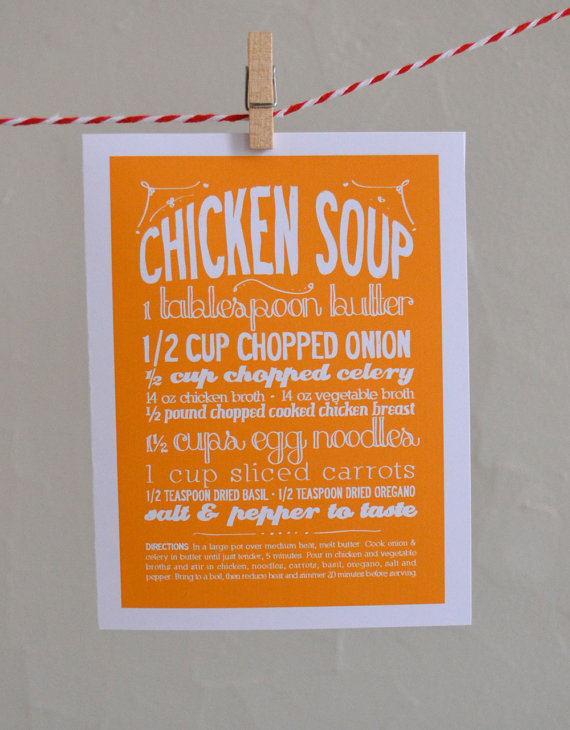 CHICKEN SOUP
1 tablespoon butter
1/2 CUP CHOPPED ONION
½ cup chopped celery
14 oz chicken broth • 14 oz vegetable broth
½ pound chopped cooked chicken breast
1½ cups egg noodles
1 cup sliced carrots
1/2 TEASPOON DRIED BASIL • 1/2 TEASPOON DRIED OREGANO
salt & pepper to taste
DIRECTIONS In a large pot over medium heat, melt butter. Cook onion &
celery in butter until just tender, 5 minutes. Pour in chicken and vegetable
broths and stir in chicken, noodles, carrots, basil, oregano, salt and
pepper. Bring to a boil, then reduce heat and simmer 20 minutes before serving.